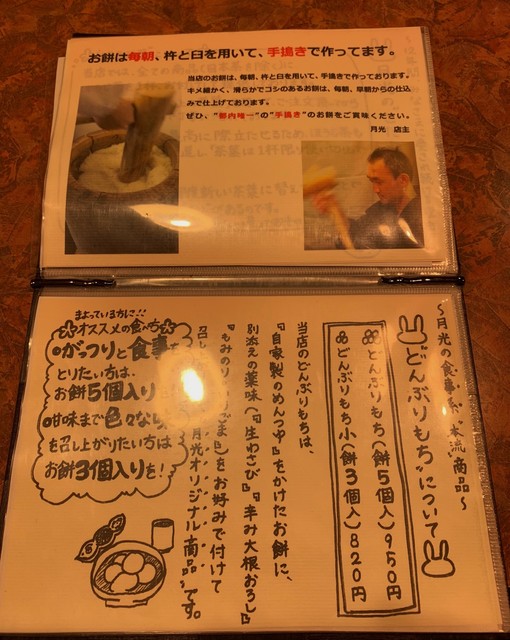 お餅は毎朝、杵と臼を用いて、手搗きで作ってます。
当店のお餅は、毎朝、杵と臼を用いて、手搗きで作っております。
キメ細かく、滑らかでコシのあるお餅は、毎朝、早朝からの仕込
みで仕上げております。
ぜひ、“都内唯一”の“手搗き”のお餅をご賞味ください。
月光 店主
～月光の食事系・本流商品～
“どんぶりもち”について
どんぶりもち(餅5個入)950円
どんぶりもち小(餅3個入)820円
当店のどんぶりもちは、
『自家製のめんつゆ』をかけたお餅に、
別添えの薬味(『生わさび』『辛み大根おろし』
『もみのり』
』をお好みで付けて
召し
月光オリジナル商品”です。
まよっている方に!!
☆オススメの食べ方☆
●がっつりと食事を
とりたい方は、
お餅5個入り
●甘味まで色々なら
を召し上がりたい方は
お餅3個入りを!